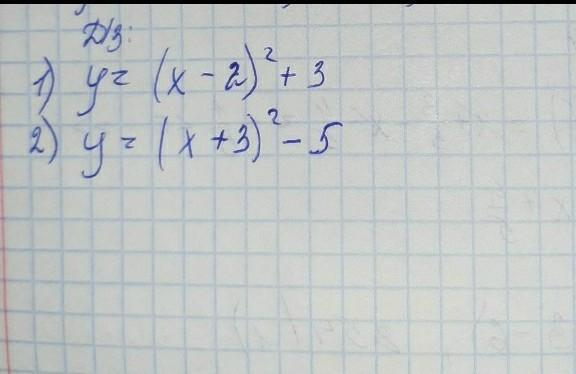 Д/з:
1) y = (x - 2)² + 3
2) y = (x + 3)² - 5